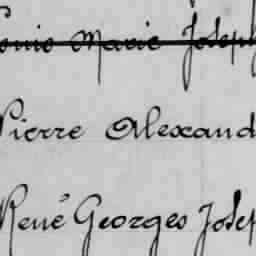 onio Marie Joseph
Pierre Alexand
René Georges Josep